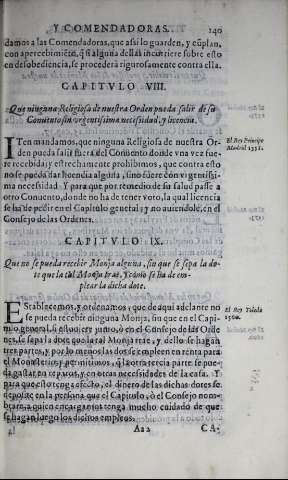 Y COMENDADORAS. 140
damos a las Comendadoras, que assi lo guarden, y cūplan,
con apercebimiēto, q̄ si alguna dellas incurriere sobre esto
en desobediencia, se procederá rigurosamente contra ella.
CAPITVLO VIII.
Que ninguna Religiosa de nuestra Orden pueda salir de su
Conuento sin vrgentissima necessidad, y licencia.
ITen mandamos, que ninguna Religiosa de nuestra Or-
den pueda salir fuera del Conuento donde vna vez fue-
re recebida; y estrechamente prohibimos, que contra esto
no se pueda dar licencia alguna, sino fuere con vrgentissi-
ma necessidad. Y para que por remedio de su salud passe a
otro Conuento, donde no ha de tener voto, la qual licencia
se ha de pedir en el Capitulo general; y no auiendole, en el
Consejo de las Ordenes.
El Rey Principe
Madrid 1552.
CAPITVLO IX.
Que no se pueda recebir Monja alguna, sin que se sepa la do-
te que la tal Monja trae. Y como se ha de em-
plear la dicha dote.
EStablecemos, y ordenamos, que de aqui adelante no
se pueda recebir ninguna Monja, sin que en el Capi-
tulo general, si estuuiere junto, ò en el Consejo de las Orde
nes, se sepa la dote que la tal Monja trae, y dello se hagan
tres partes, y por lo menos las dos se empleen en renta para
el Monasterio; y permitimos, q̄ la otra tercia parte se pue-
da gastar en reparos, y en otras necessidades de la casa. Y
para que esto tenga efecto, el dinero de las dichas dotes se
deposite en la persona que el Capitulo, ò el Consejo nom-
brare, a quien encargamos tenga mucho cuidado de que
se hagan luego los dichos empleos.
El Rey Toledo
1560.
Aa 2 CA-